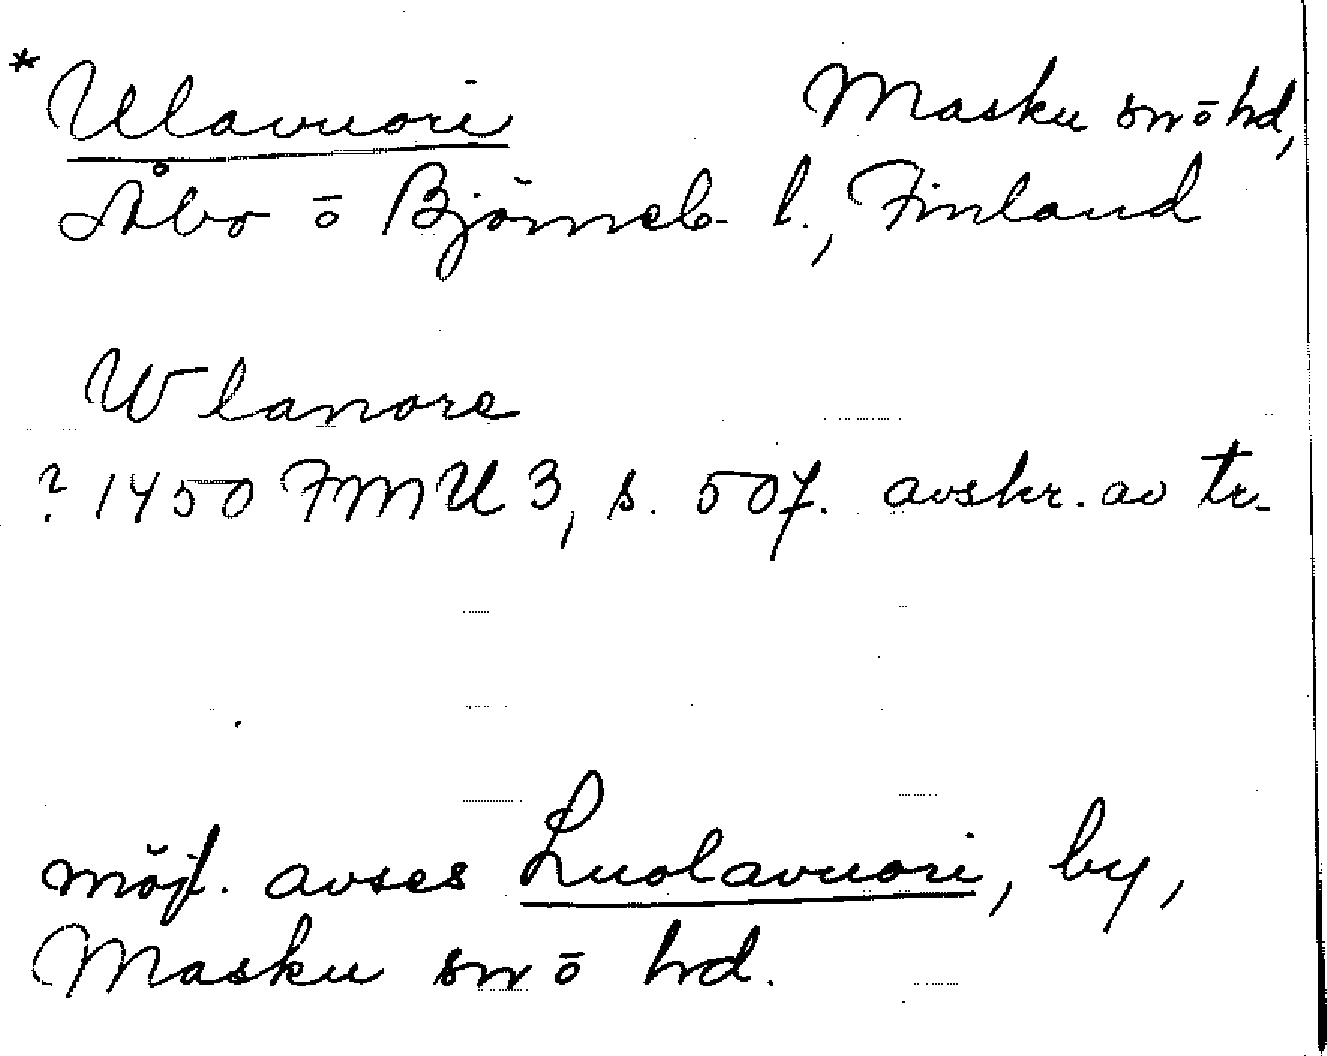 * Ulavuori Masku sn ō hd,
Åbo ō Björneb. l., Finland
Wlanore
? 1450 FMU 3, s. 507. avskr. av tr.
möjl. avses Luolavuori, by,
Masku sn ō hd.